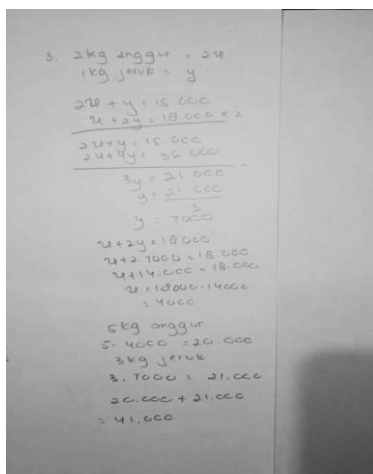 3. 2kg anggur = 2x
1kg jeruk = y
2x + y = 15.000
x + 2y = 18.000 x 2
2x + y = 15.000
2x + 4y = 36.000 -
3y = 21.000
y = 21.000
3
y = 7000
x + 2y = 18000
x + 2.7000 = 18.000
x + 14.000 = 18.000
x = 18000 - 14000
= 4000
5kg anggur
5. 4000 = 20.000
3kg jeruk
3. 7000 = 21.000
20.000 + 21.000
= 41.000